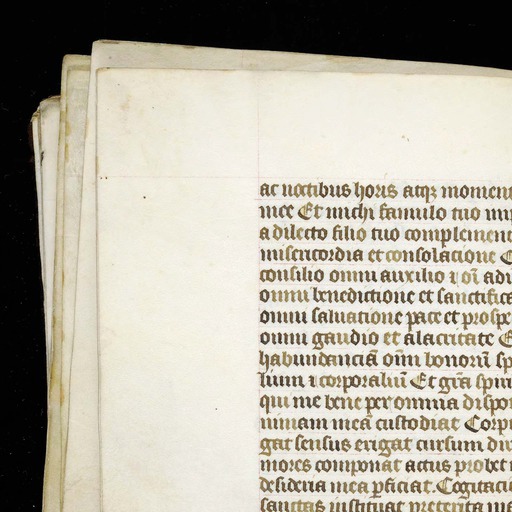 ac noctibus horis atqꝫ momen
mee Et michi famulo tuo im
a dilecto filio tuo complemen
misericordia et consolatione
consilio omni auxilio ⁊ oī adi
omni benedictione et sanctific
omni saluatione pace et prospe
omni gaudio et alacritate E
habundanciā oīm bonorū sp
lium ⁊ corporaliū Et gr̄a spiri
qui me bene per omnia dispo
nimam meā custodiat Corp
gat sensus erigat cursum di
mores componat actus probet
desideria mea ꝑficiat. Cogitaci
sanctas instituat preterita ma